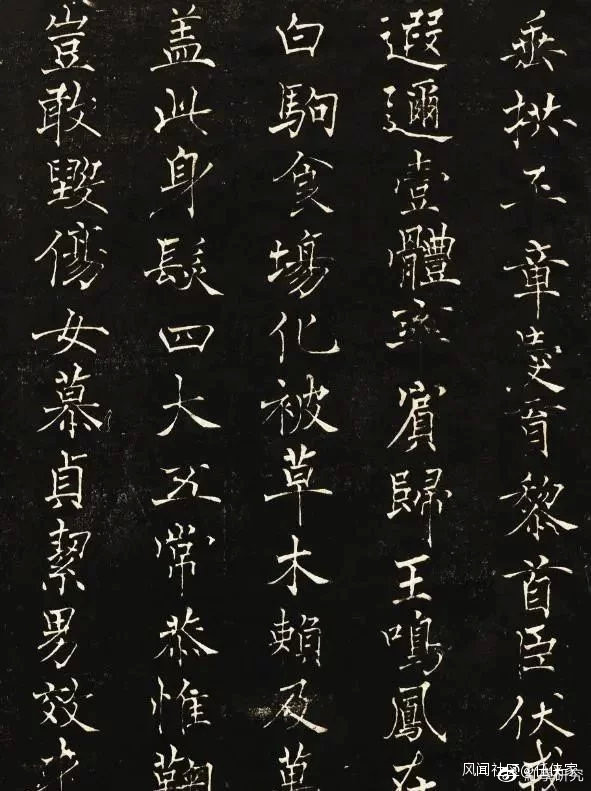 垂拱平章愛育黎首臣伏戎
遐邇壹體率賓歸王鳴鳳在
白駒食場化被草木賴及萬
盖此身髮四大五常恭惟鞠
豈敢毀傷女慕貞絜男效才
风闻社区@任侠家